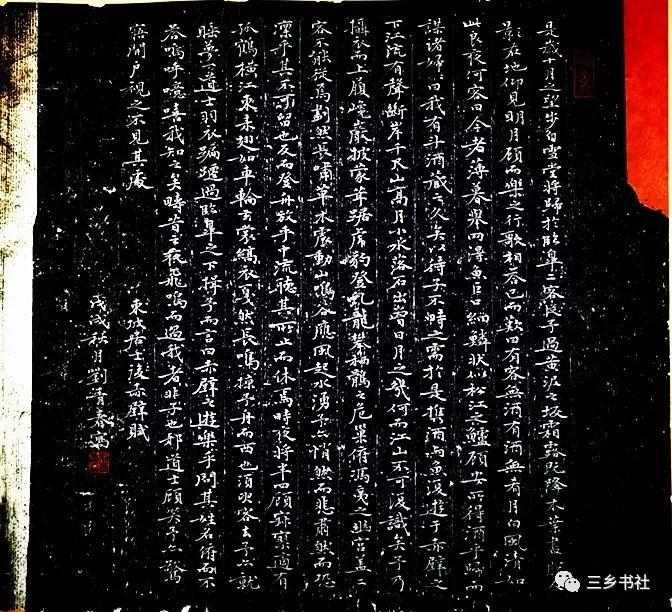 是歲十月之望步自雪堂將歸於臨皋二客從予過黃泥之坂霜露既降木葉盡脫
影在地仰見明月顧而樂之行歌相答已而歎曰有客無酒有酒無肴月白風清如
此良夜何客曰今者薄暮舉网得魚巨口細鱗狀似松江之鱸顧安所得酒乎歸而
謀諸婦曰我有斗酒藏之久矣以待子不時之需於是攜酒與魚復遊于赤壁之
下江流有聲斷岸千尺山高月小水落石出曾日月之幾何而江山不可復識矣予乃
攝衣而上履巉巖披蒙茸踞虎豹登虬龍攀栖鶻之危巢俯馮夷之幽宮蓋二
客不能從焉劃然長嘯草木震動山鳴谷應風起水湧予亦悄然而悲肅然而恐
凜乎其不可留也反而登舟放乎中流聽其所止而休焉時夜將半四顧寂寥適有
孤鶴橫江東來翅如車輪玄裳縞衣戛然長鳴掠予舟而西也須臾客去予亦就
睡夢一道士羽衣蹁躚過臨皋之下揖予而言曰赤壁之遊樂乎問其姓名俯而不
答嗚呼噫嘻我知之矣疇昔之夜飛鳴而過我者非子也邪道士顧笑予亦驚
寤開戶視之不見其處
東坡居士後赤壁賦
戊戌秋月劉青春寫
三乡书社